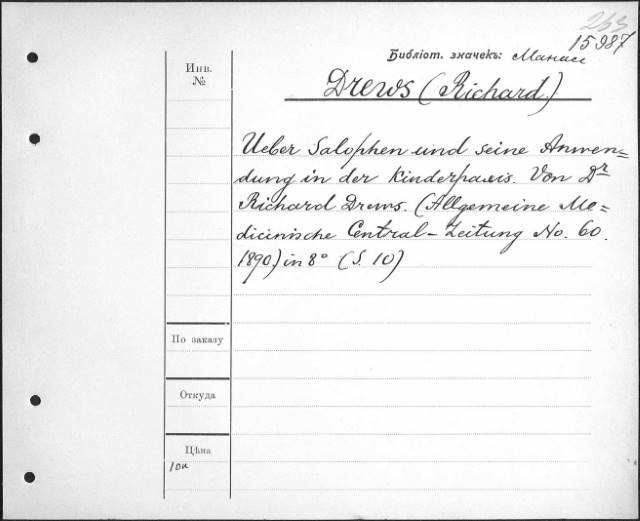 263
15987
Библіот. значекъ: Манасс
Инв.
№
Drews (Richard.)
Ueber Salophen und seine Anwen=
dung in der Kinderpaxis. Von Dr
Richard Drews. (Allgemeine Me=
dicinische Central-Zeitung No. 60.
1890) in 8° (S. 10)
По заказу
Откуда
Цѣна
10к